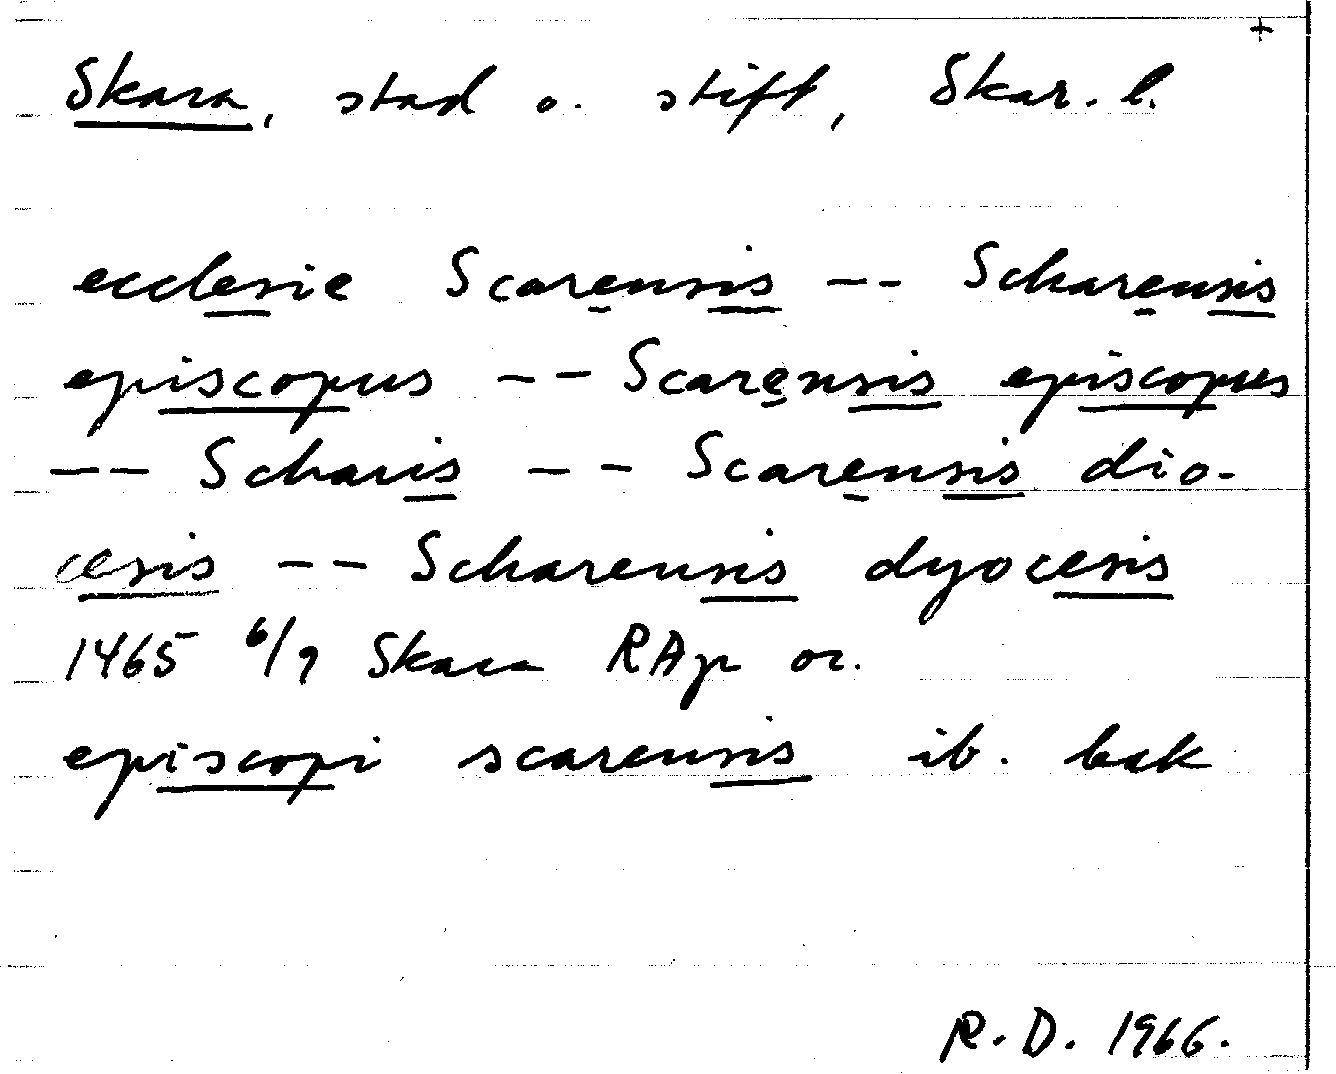 +
Skara, stad o. stift, Skar. l.
ecclesie Scarensis -- Scharensis
episcopus -- Scarensis episcopus
-- Scharis -- Scarensis dio-
cesis -- Scharensis dyocesis
1465 6/9 Skara RAp or.
episcopi scarensis ib. bak
R.D. 1966.